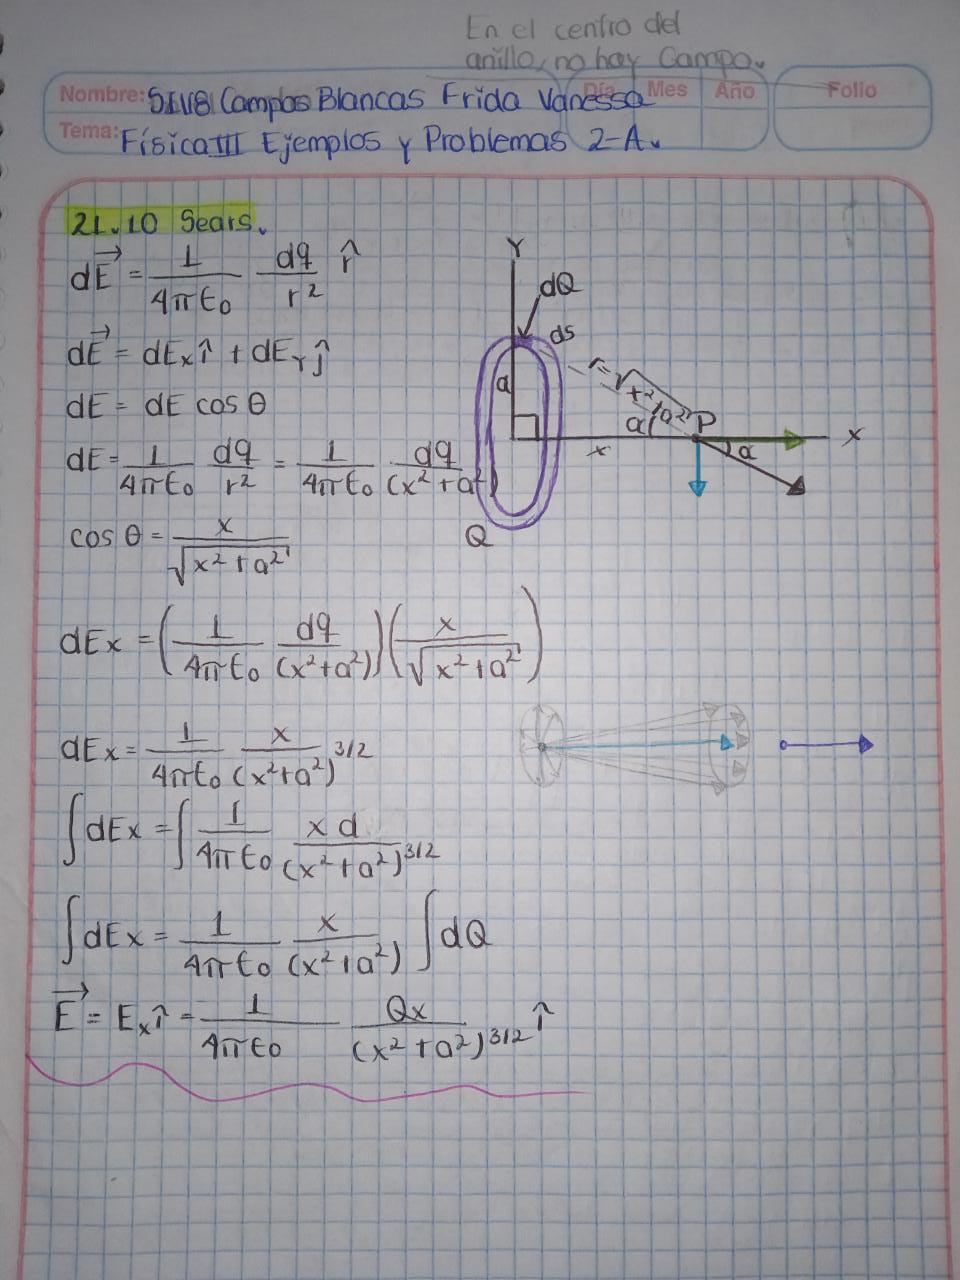 En el centro del
anillo, no hay Campo.
Nombre: 5IV8 Campos Blancas Frida Vanessa
Día Mes Año Folio
Tema: Física III Ejemplos y Problemas 2-A.
21.10 Sears.
dE⃗ = 1/(4πε₀) dq/r² r̂
dE⃗ = dEₓ î + dE_Y ĵ
dE = dE cos θ
dE = 1/(4πε₀) dq/r² = 1/(4πε₀) dq/(x²+a²)
cos θ = x/√(x²+a²)
dEx = (1/(4πε₀) dq/(x²+a²)) (x/√(x²+a²))
dEx = 1/(4πε₀) x/(x²+a²)^3/2
∫dEx = ∫ 1/(4πε₀) x d/(x²+a²)^3/2
∫dEx = 1/(4πε₀) x/(x²+a²) ∫dQ
E⃗ = Eₓ î = 1/(4πε₀) Qx/(x²+a²)^3/2 î
Y
dQ
ds
a
r=√x²+a²
α
P
x
x
α
Q